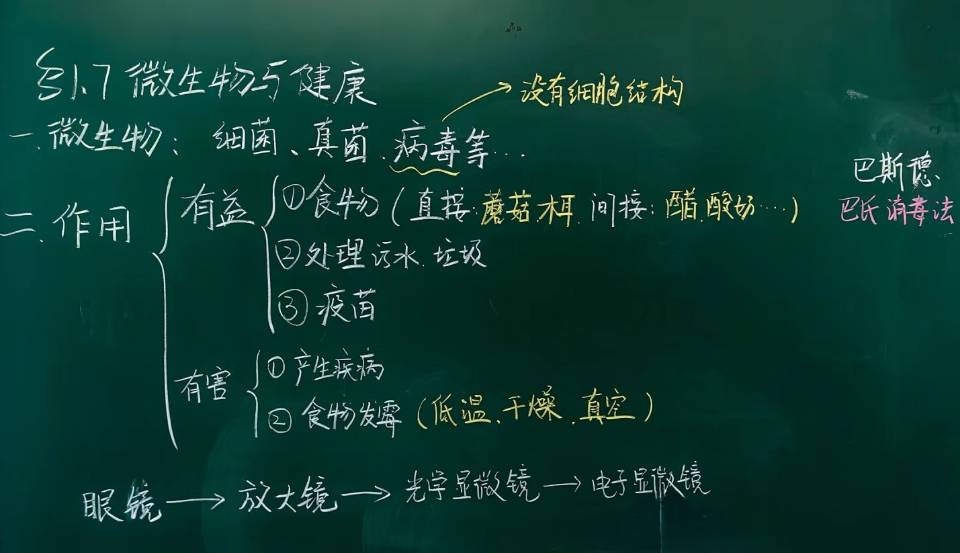 §1.7 微生物与健康
→没有细胞结构
一.微生物：细菌、真菌.病毒等…
巴斯德
巴氏消毒法
二.作用
有益
①食物(直接:蘑菇木耳 间接:醋酸奶…)
②处理污水.垃圾
③疫苗
有害
①产生疾病
②食物发霉(低温、干燥.真空)
眼镜→放大镜→光学显微镜→电子显微镜